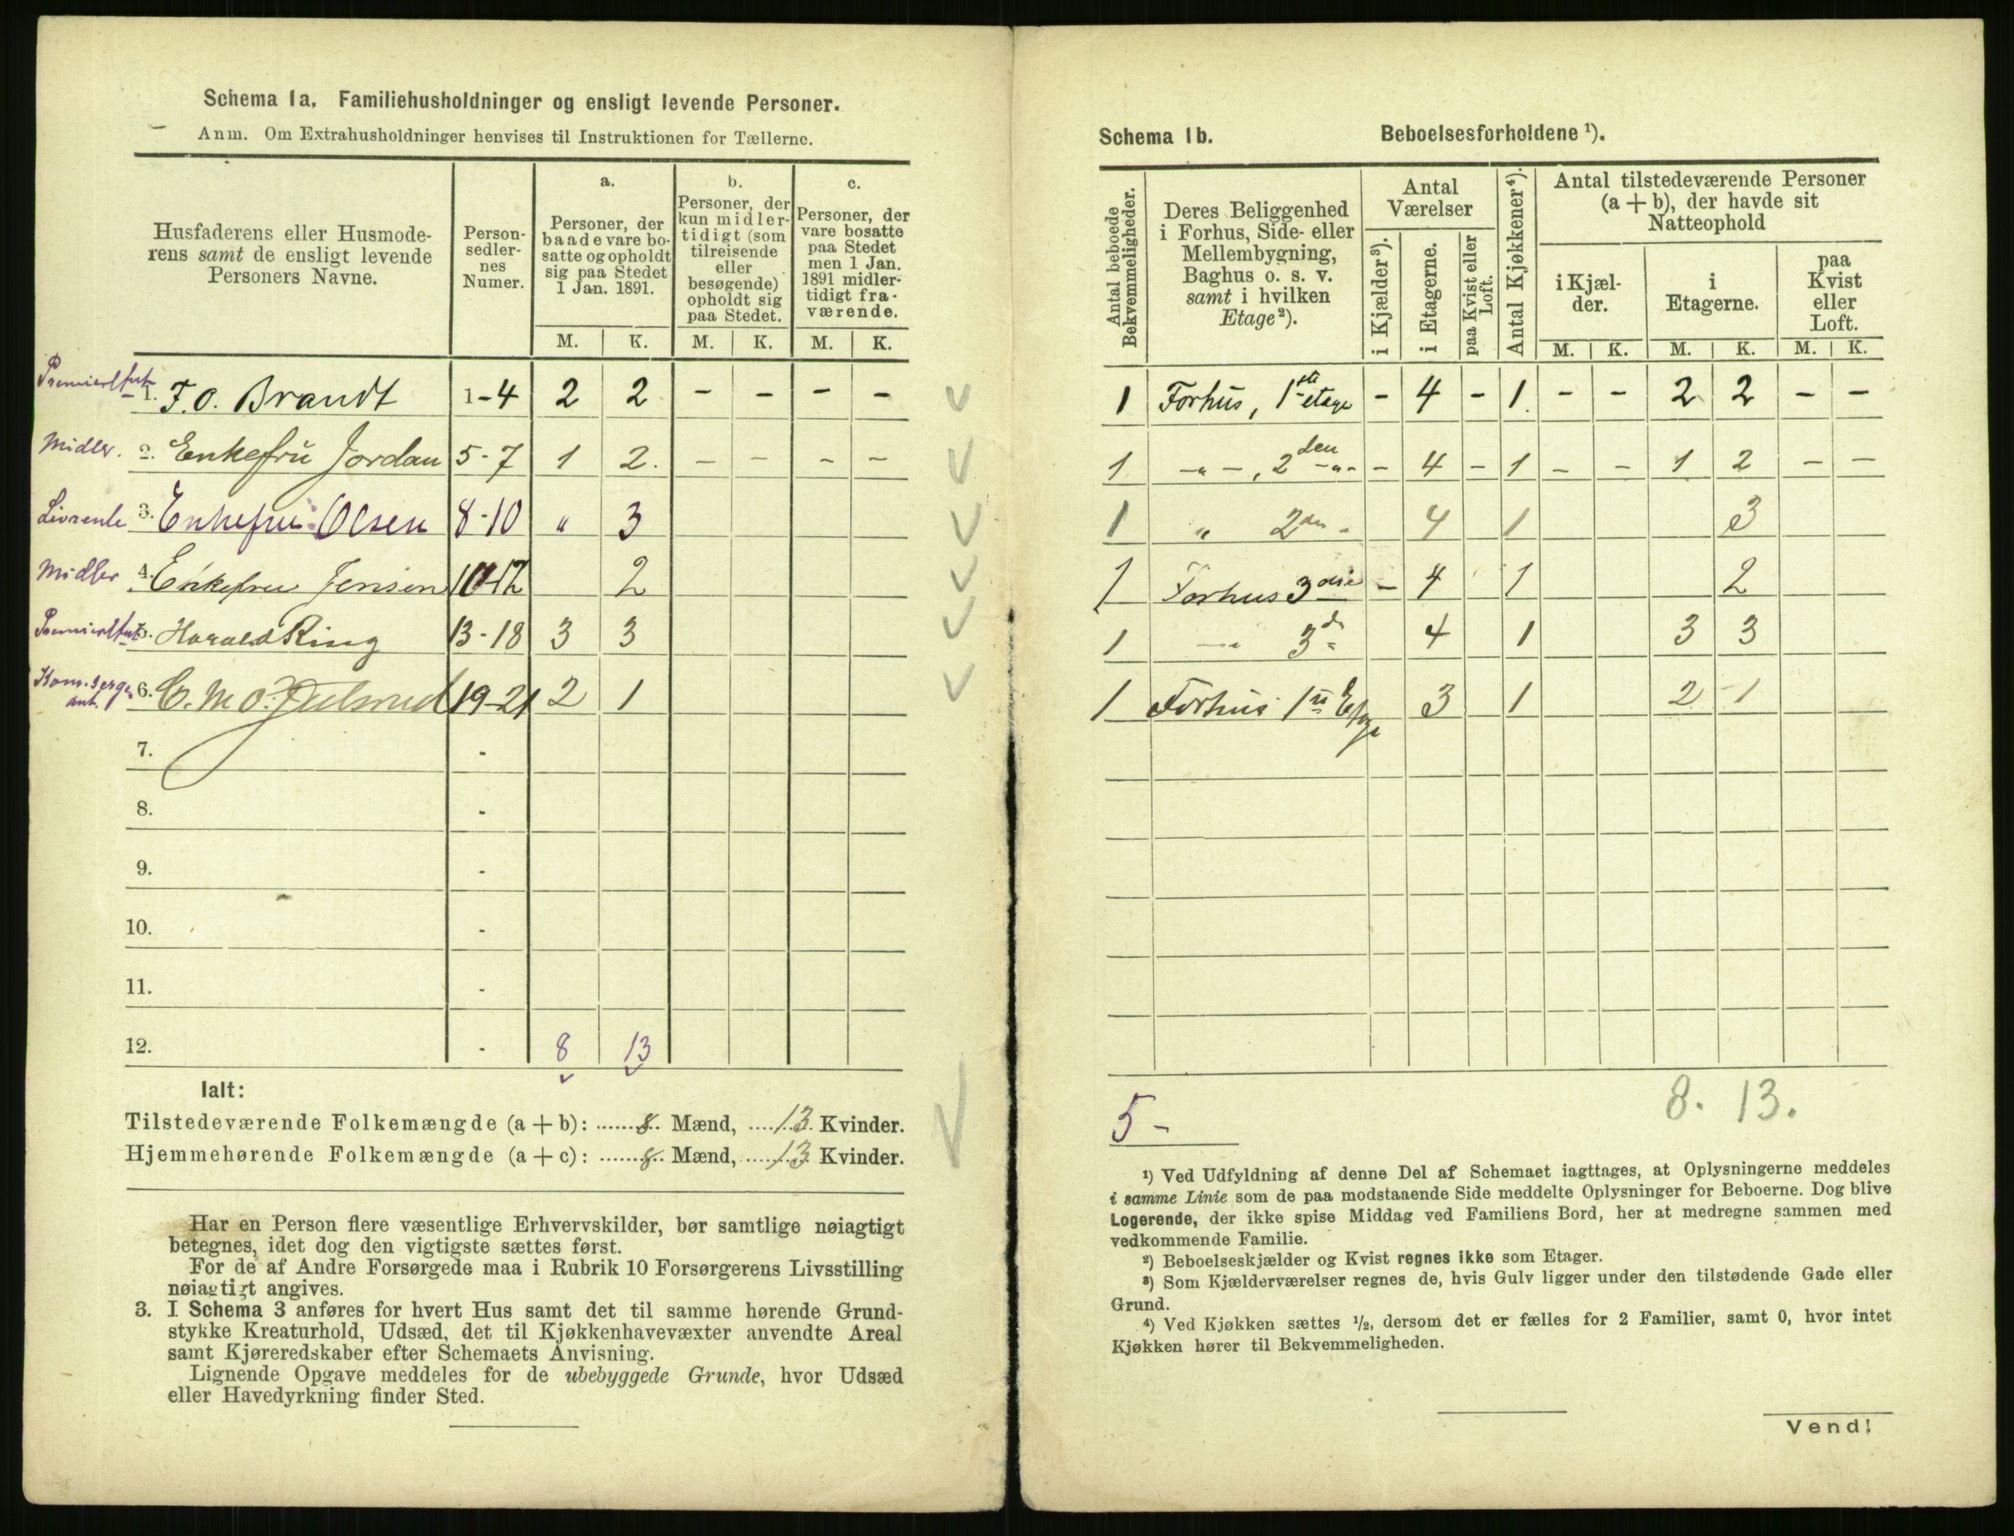 Schema 1a. Familiehusholdninger og ensligt levende Personer.
Anm. Om Extrahusholdninger henvises til Instruktionen for Tællerne.
Husfaderens eller Husmode-
rens samt de ensligt levende
Personers Navne.
Person-
sedler-
nes
Numer.
a.
Personer, der
baade vare bo-
satte og opholdt
sig paa Stedet
1 Jan. 1891.
b.
Personer, der
kun midler-
tidigt (som
tilreisende
eller
besøgende)
opholdt sig
paa Stedet.
c.
Personer, der
vare bosatte
paa Stedet
men 1 Jan.
1891 midler-
tidigt fra-
værende.
M. K. M. K. M. K.
Premierltnt 1. F. O. Brandt 1-4 2 2 - - - -
Midler. 2. Enkefru Jordan 5-7 1 2. - - - -
Livrente 3. Enkefru Olsen 8-10 " 3
Midler 4. Enkefru Jensen 12 2
Premierltnt 5. Harald Ring 13-18 3 3
Kom.serge-
ant. 6. C. M. O. 19-21 2 1
7. -
8. -
9. -
10. -
11. -
12. - 8 13
Ialt:
Tilstedeværende Folkemængde (a + b): 8 Mænd, 13 Kvinder.
Hjemmehørende Folkemængde (a + c): 8 Mænd, 13 Kvinder.
Har en Person flere væsentlige Erhvervskilder, bør samtlige nøiagtigt
betegnes, idet dog den vigtigste sættes først.
For de af Andre Forsørgede maa i Rubrik 10 Forsørgerens Livsstilling
nøiagtigt angives.
3. I Schema 3 anføres for hvert Hus samt det til samme hørende Grund-
stykke Kreaturhold, Udsæd, det til Kjøkkenhavevæxter anvendte Areal
samt Kjøreredskaber efter Schemaets Anvisning.
Lignende Opgave meddeles for de ubebyggede Grunde, hvor Udsæd
eller Havedyrkning finder Sted.
Schema 1b. Beboelsesforholdene ¹).
Antal beboede
Bekvemmeligheder.
Deres Beliggenhed
i Forhus, Side- eller
Mellembygning,
Baghus o. s. v.
samt i hvilken
Etage²).
Antal
Værelser
i Kjælder³).
i Etagerne.
paa Kvist eller
Loft.
Antal Kjøkkener⁴).
Antal tilstedeværende Personer
(a + b), der havde sit
Natteophold
i Kjæl-
der.
i
Etagerne.
paa
Kvist
eller
Loft.
M. K. M. K. M. K.
1 Forhus, 1ste etage - 4 - 1. - - 2 2 - -
1 -"-, 2den -"- - 4 - 1 - - 1 2 - -
1 " 2den - 4 1 3
1 Forhus 3die - 4 1 2
1 -"- 3d - 4 1 3 3
1 Forhus 1ste Etage 3 1 2 1
8. 13.
5 -
¹) Ved Udfyldning af denne Del af Schemaet iagttages, at Oplysningerne meddeles
i samme Linie som de paa modstaaende Side meddelte Oplysninger for Beboerne. Dog blive
Logerende, der ikke spise Middag ved Familiens Bord, her at medregne sammen med
vedkommende Familie.
²) Beboelseskjælder og Kvist regnes ikke som Etager.
³) Som Kjælderværelser regnes de, hvis Gulv ligger under den tilstødende Gade eller
Grund.
⁴) Ved Kjøkken sættes ½, dersom det er fælles for 2 Familier, samt 0, hvor intet
Kjøkken hører til Bekvemmeligheden.
Vend!